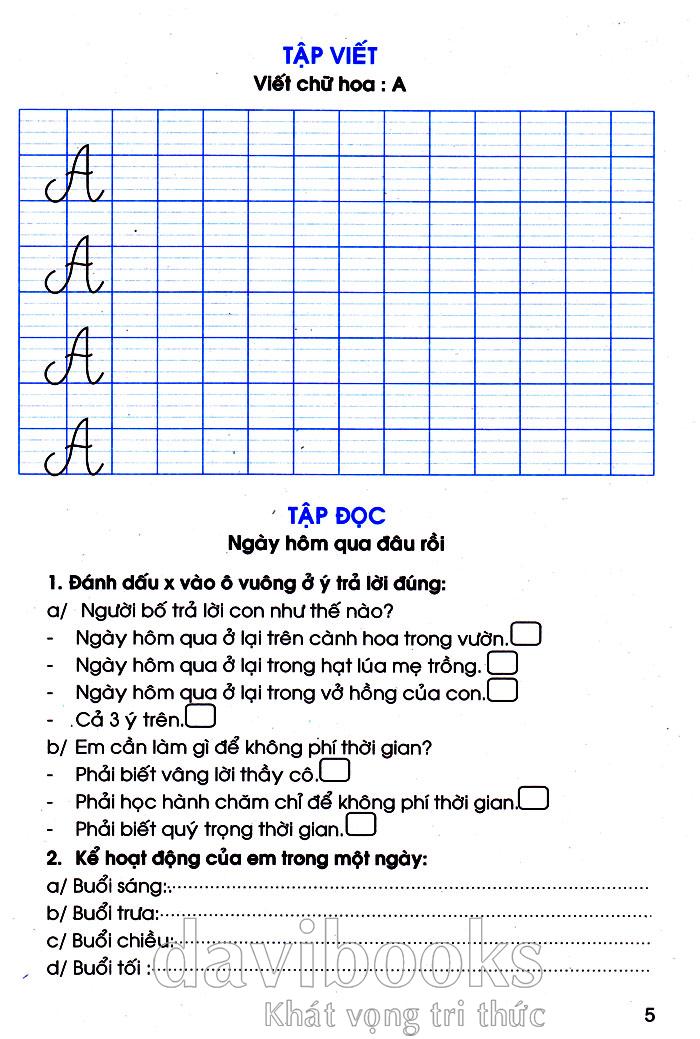 TẬP VIẾT
Viết chữ hoa : A
A
A
A
A
TẬP ĐỌC
Ngày hôm qua đâu rồi
1. Đánh dấu x vào ô vuông ở ý trả lời đúng:
a/ Người bố trả lời con như thế nào?
- Ngày hôm qua ở lại trên cành hoa trong vườn.
- Ngày hôm qua ở lại trong hạt lúa mẹ trồng.
- Ngày hôm qua ở lại trong vở hồng của con.
- Cả 3 ý trên.
b/ Em cần làm gì để không phí thời gian?
- Phải biết vâng lời thầy cô.
- Phải học hành chăm chỉ để không phí thời gian.
- Phải biết quý trọng thời gian.
2. Kể hoạt động của em trong một ngày:
a/ Buổi sáng:
b/ Buổi trưa:
c/ Buổi chiều:
d/ Buổi tối :
davibooks
Khát vọng tri thức
5